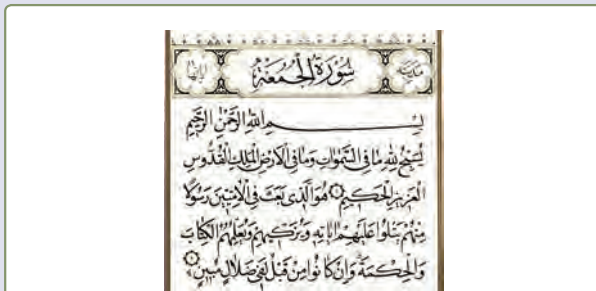 سُورَةُ الْجُمُعَةِ
بِسْمِ اللهِ الرَّحْمٰنِ الرَّحِيمِ
يُسَبِّحُ لِلّٰهِ مَا فِي السَّمٰوَاتِ وَمَا فِي الْاَرْضِ الْمَلِكِ الْقُدُّوسِ
الْعَزِيزِ الْحَكِيمِ ۝ هُوَ الَّذِي بَعَثَ فِي الْاُمِّيِّنَ رَسُولًا
مِنْهُمْ يَتْلُوا عَلَيْهِمْ اٰيَاتِهِ وَيُزَكِّيهِمْ وَيُعَلِّمُهُمُ الْكِتَابَ
وَالْحِكْمَةَ وَاِنْ كَانُوا مِنْ قَبْلُ لَفِي ضَلَالٍ مُبِينٍ ۝